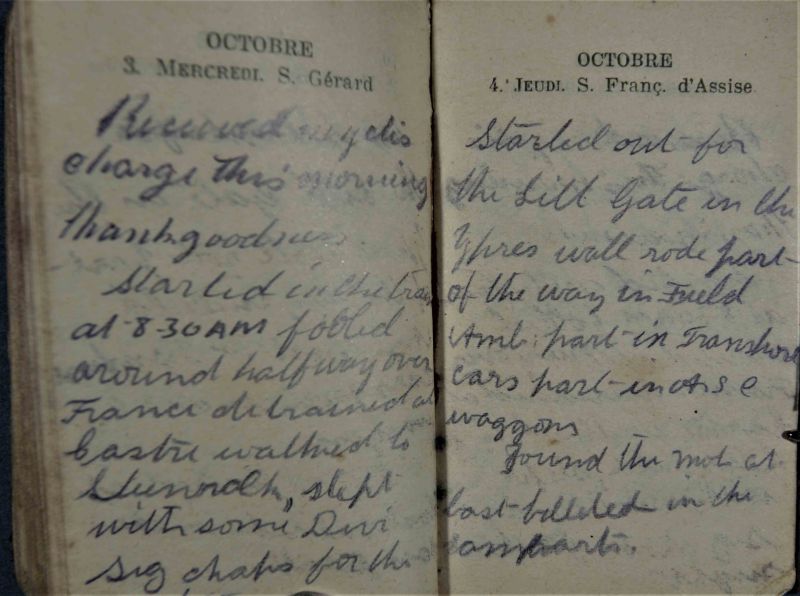 OCTOBRE
3. MERCREDI. S. Gérard
Received my dis
charge this morning
thank goodness
Started in the train
at 8-30 AM fooled
around halfway over
France detrained at
Castre walked to
slept
with some Divi
sig chaps for the
OCTOBRE
4. JEUDI. S. Franç. d'Assise
Started out for
the Lill Gate in the
Ypres wall rode part
of the way in Field
Amb: part in Transport
cars part in A S C
waggons
Found the mob at
last billeted in the
ramparts.